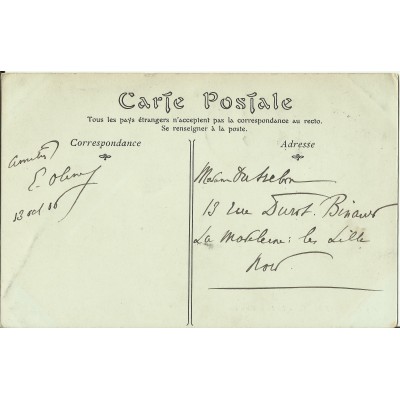 Carte Postale
Tous les pays étrangers n'acceptent pas la correspondance au recto.
Se renseigner à la poste.
Correspondance
Adresse
Amitiés
E.
13 oct 06
Madame
13 rue Durot. Binauld
La Madeleine: les Lille
Nord.